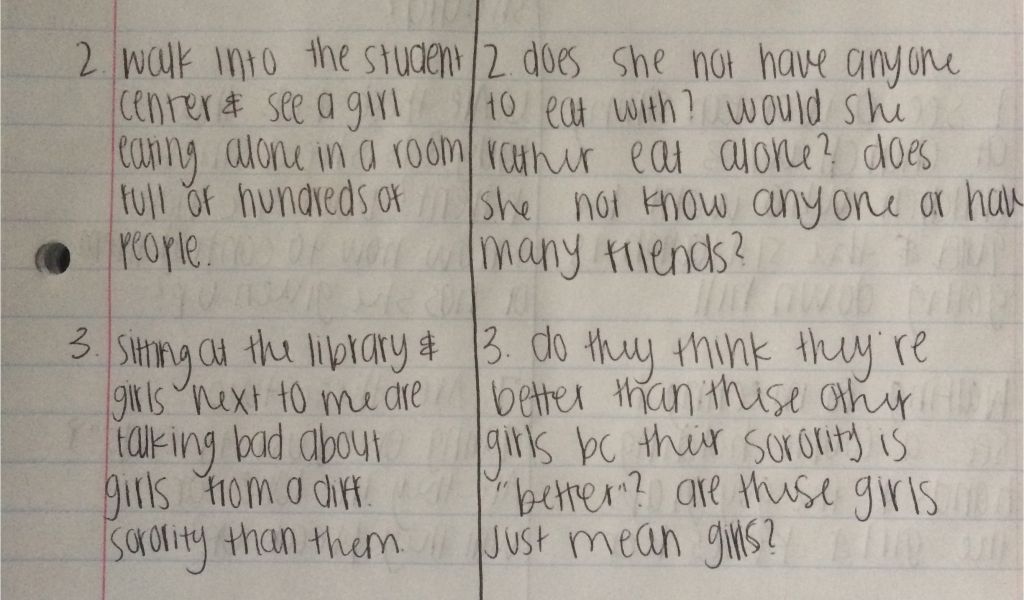 2. walk into the student
center & see a girl
eating alone in a room
full of hundreds of
people.
2. does she not have anyone
to eat with? would she
rather eat alone? does
she not know anyone or have
many friends?
3. sitting at the library &
girls next to me are
talking bad about
girls from a diff.
sorority than them.
3. do they think they're
better than these other
girls bc their sorority is
"better"? are these girls
just mean girls?